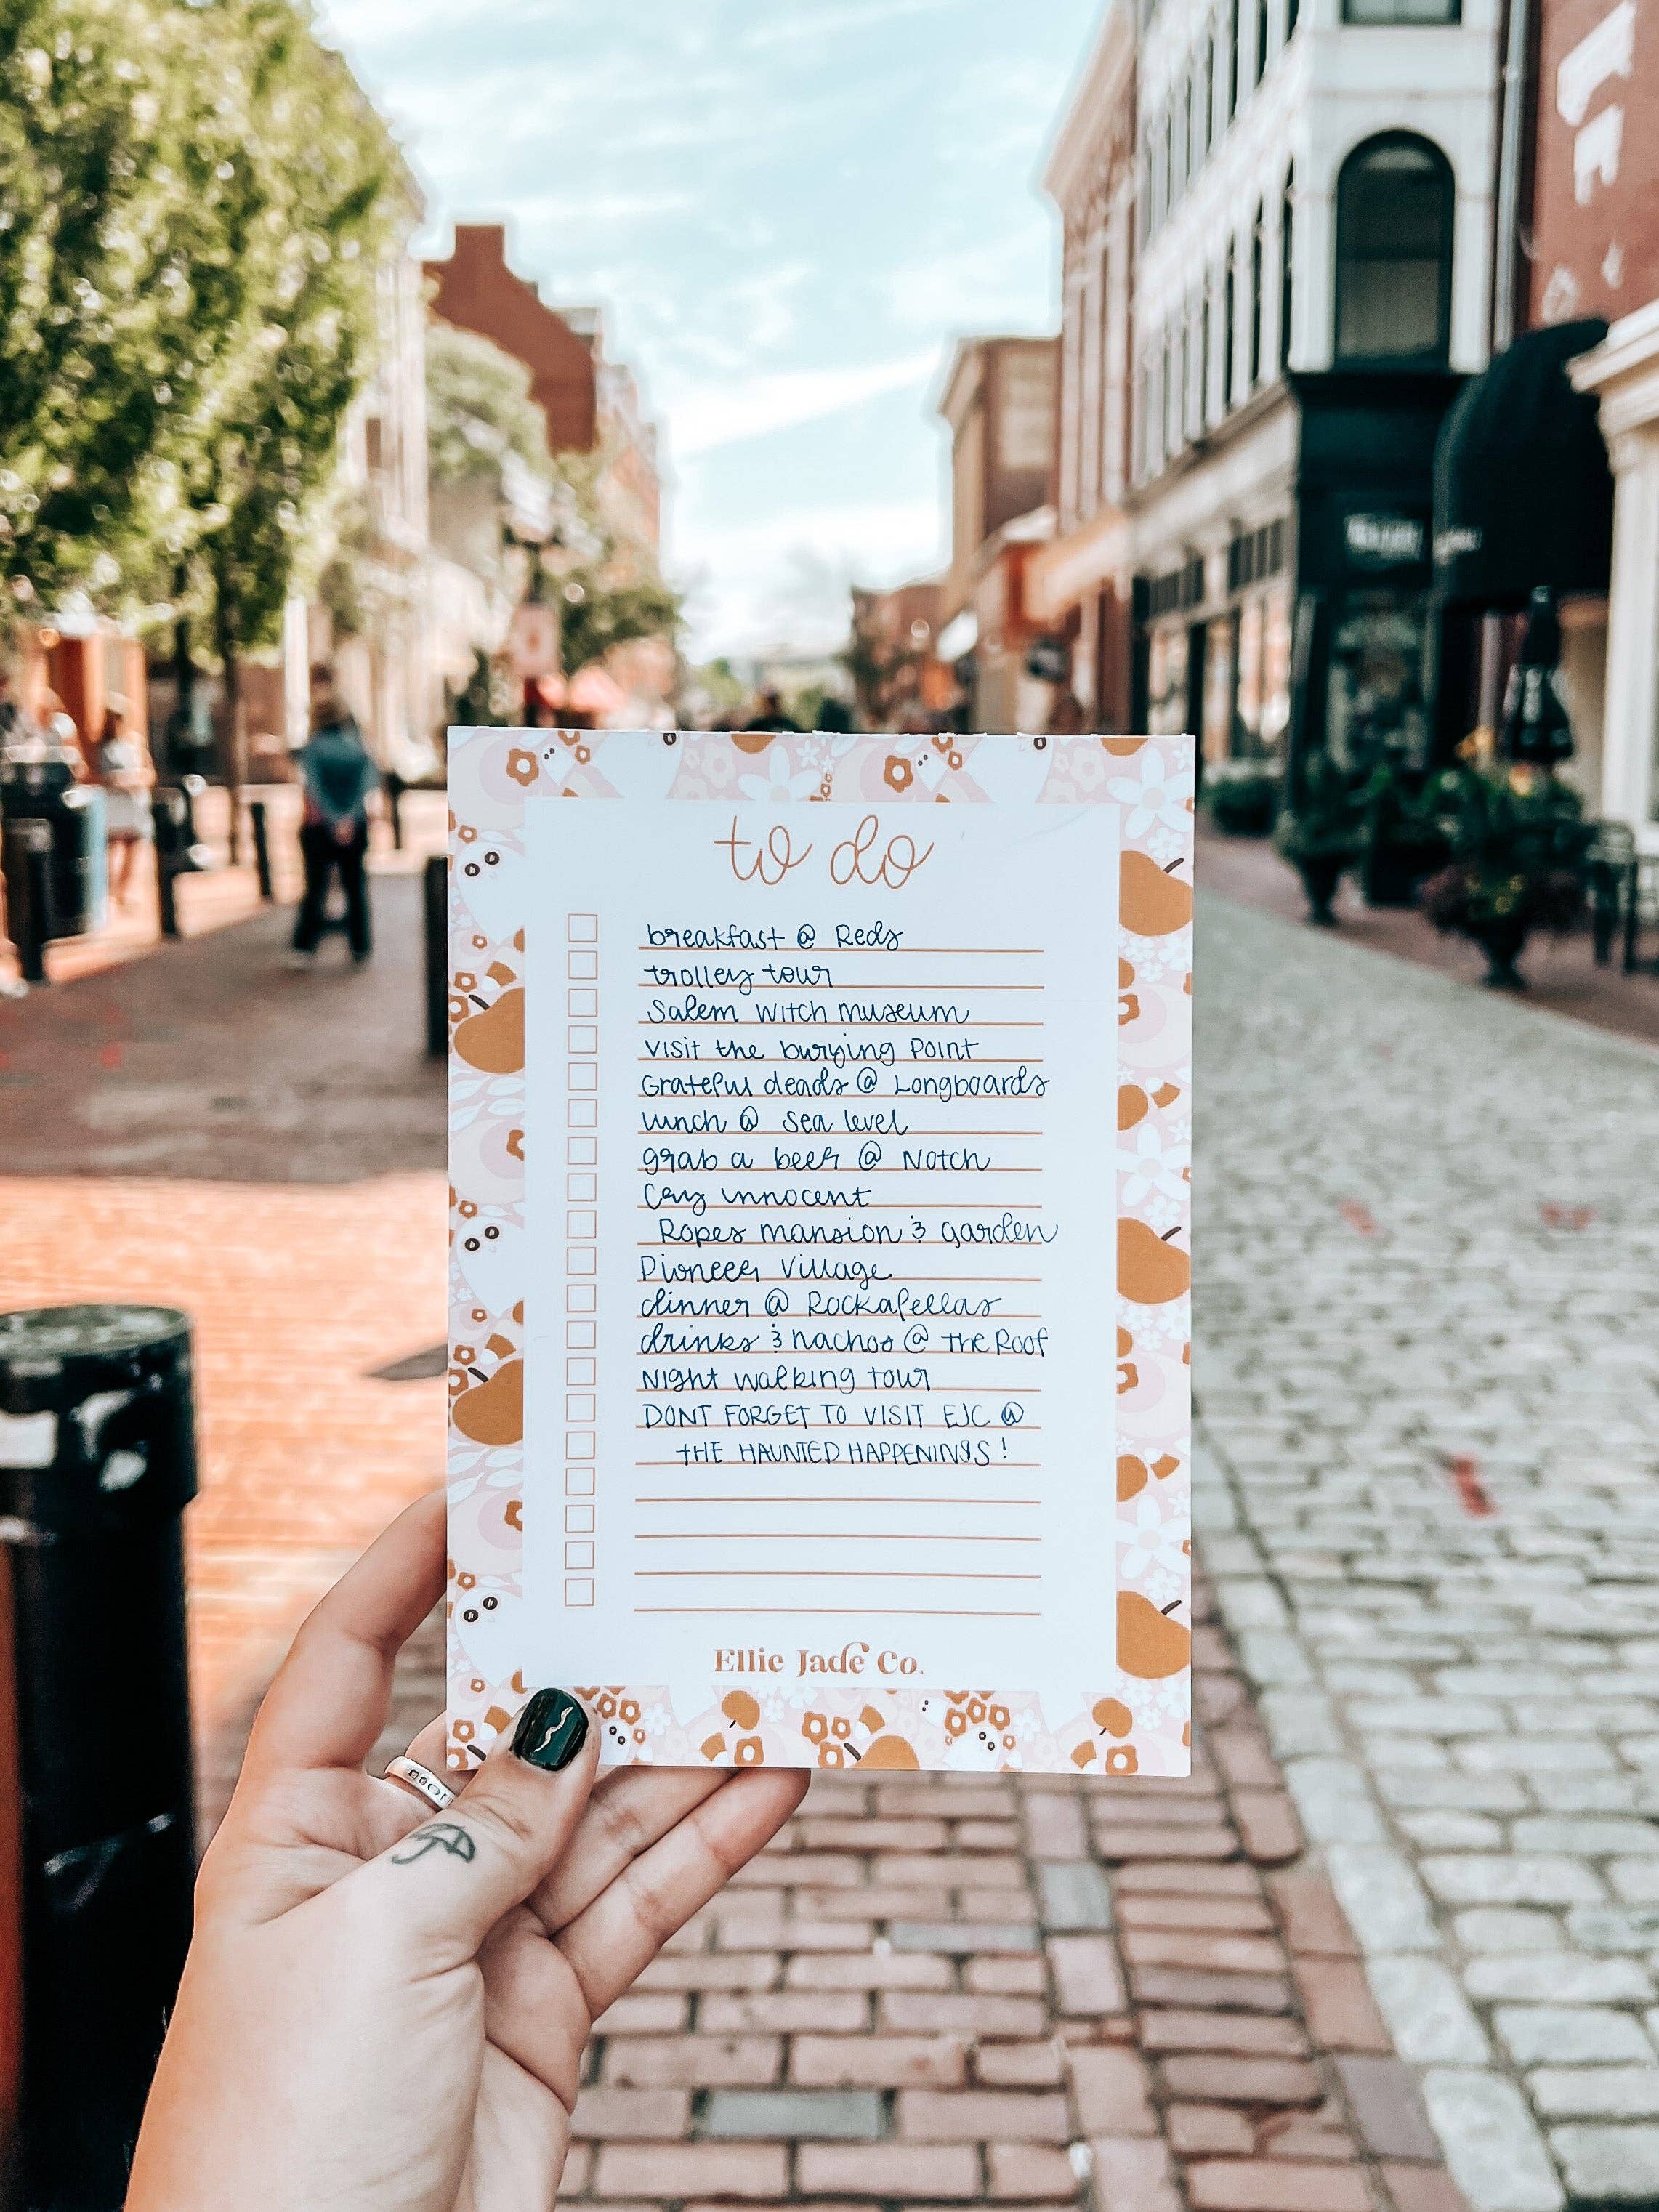 to do
breakfast @ Reds
trolley tour
Salem Witch museum
visit the burying Point
Grateful deads @ Longboards
lunch @ Sea level
grab a beer @ Notch
Cry innocent
Ropes mansion & garden
Pioneer Village
dinner @ Rockafellas
drinks & nachos @ the Roof
Night walking tour
DONT FORGET TO VISIT EJC @
tHE HAUNTED HAPPENINGS!
Ellie Jade Co.